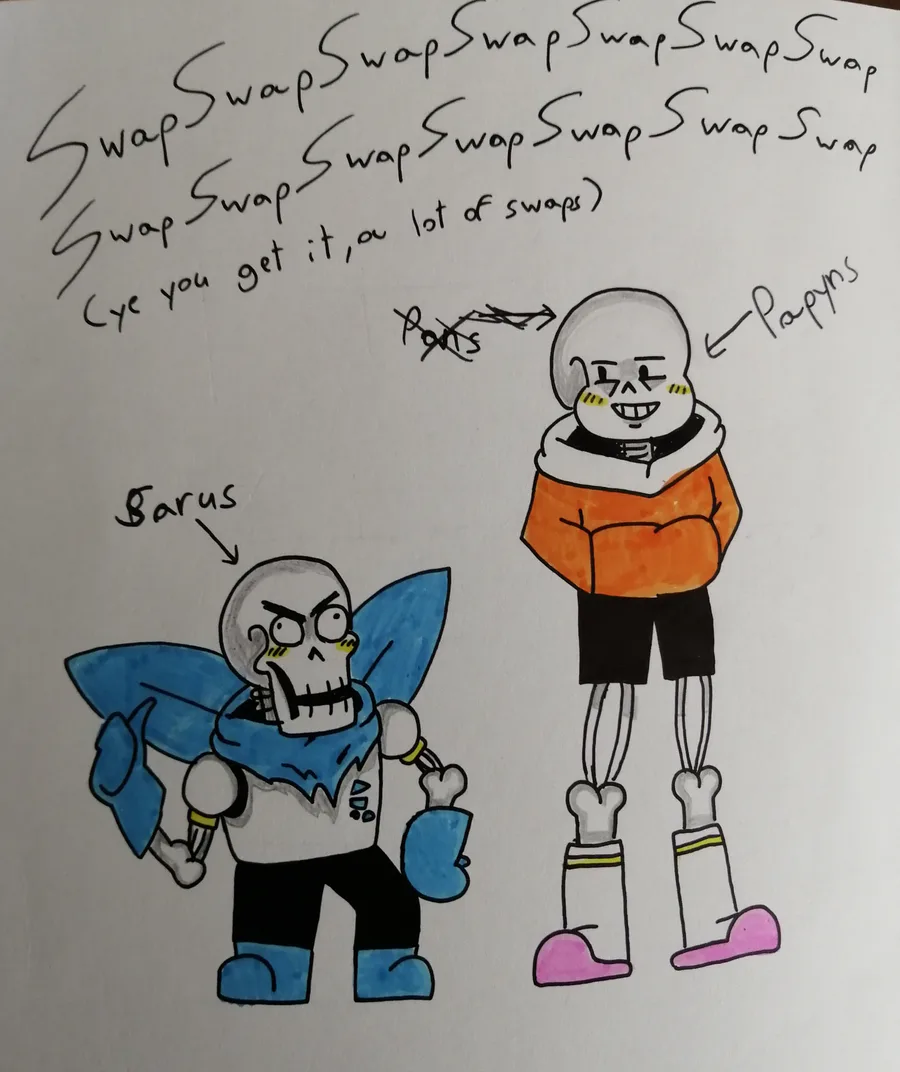 Swap Swap Swap Swap Swap Swap Swap
Swap Swap Swap Swap Swap Swap Swap
(ye you get it, a lot of swaps)
Papyns
Sarus